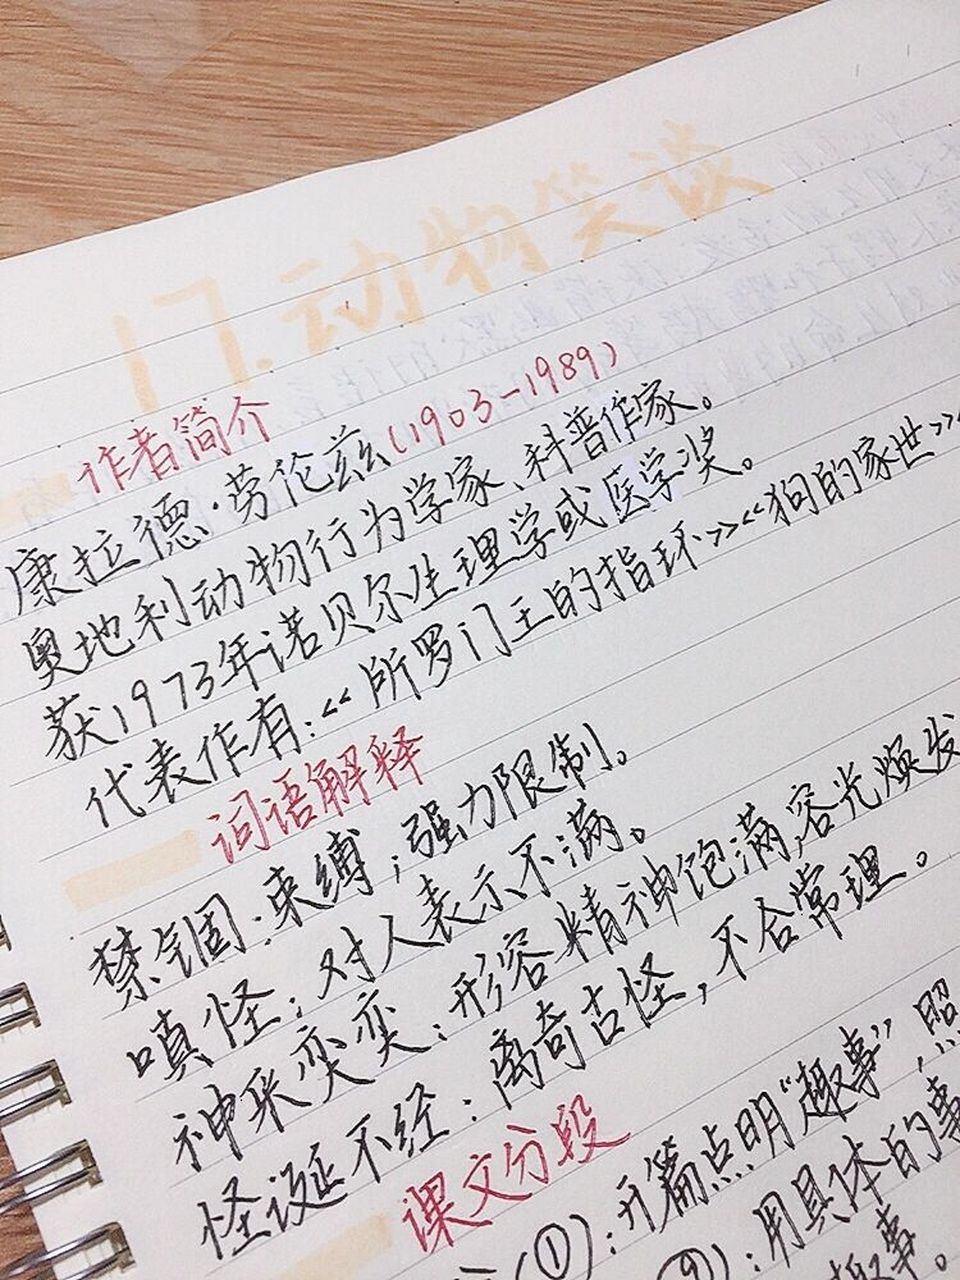 17.动物笑谈
作者简介
康拉德·劳伦兹(1903-1989)
奥地利动物行为学家、科普作家。
获1973年诺贝尔生理学或医学奖。
代表作有:《所罗门王的指环》《狗的家世》
词语解释
禁锢:束缚;强力限制。
嗔怪:对人表示不满。
神采奕奕:形容精神饱满,容光焕发
怪诞不经:离奇古怪,不合常理。
课文分段
(①):开篇点明“趣事”,照
用具体的事
趣事。